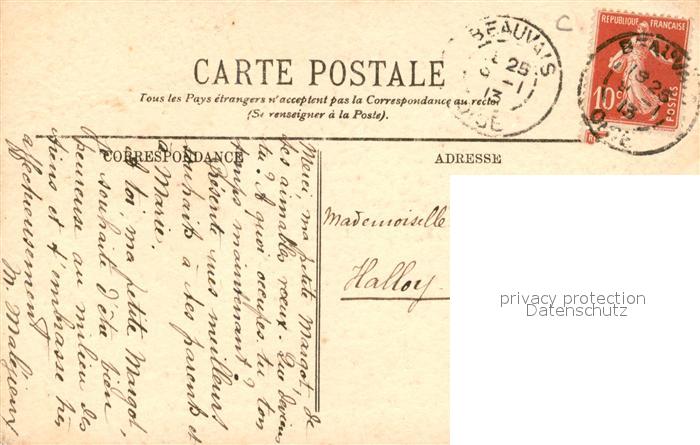 BEAUVAIS
25
-1
13
OISE
RÉPUBLIQUE FRANÇAISE
10c
POSTES
BEAUVAIS
25
13
OISE
CARTE POSTALE
Tous les Pays étrangers n'acceptent pas la Correspondance au recto
(Se renseigner à la Poste).
CORRESPONDANCE
ADRESSE
Merci, ma petite Margot, de
tes aimables vœux. Que deviens
tu? A quoi occupes-tu ton
temps maintenant?
Présente mes meilleurs
souhaits à tes parents et
à Marie.
A toi, ma petite Margot,
je souhaite d'être bien
heureuse au milieu des
tiens et t'embrasse très
affectueusement
M.
Mademoiselle
Halloy
privacy protection
Datenschutz